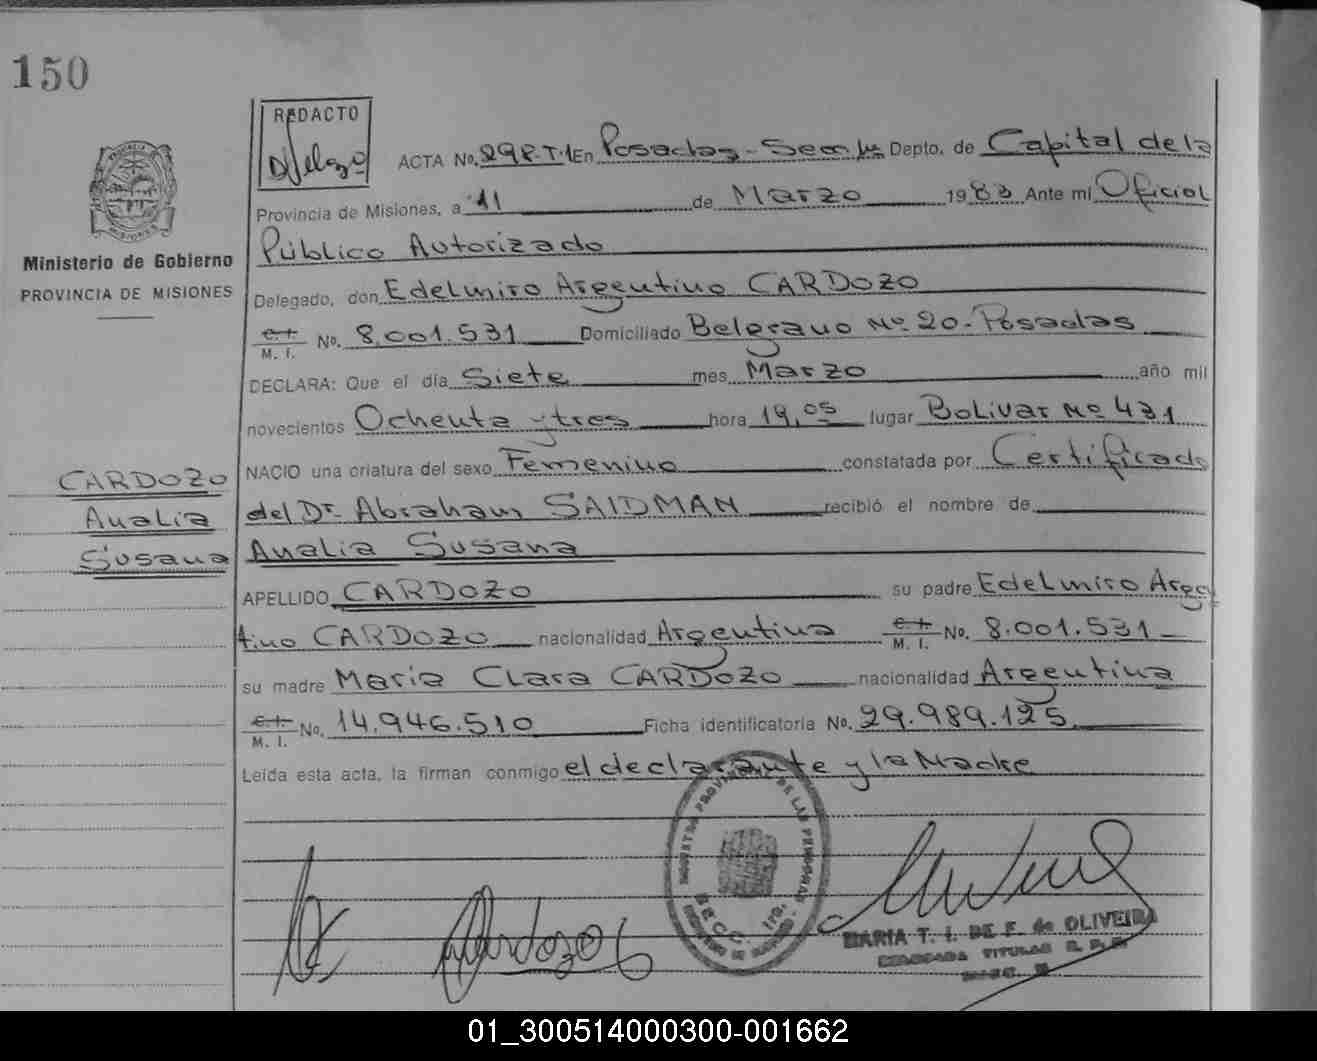 150
REDACTO
PROVINCIA
MISIONES
Ministerio de Gobierno
PROVINCIA DE MISIONES
ACTA No. 298-T-1 En Posadas - Depto. de Capital de la
Provincia de Misiones, a 11 de Marzo 1983 Ante mi Oficial
Público Autorizado
Delegado, don Edelmiro Argentino CARDOZO
M. I. No. 8.001.531 Domiciliado Belgrano Nº 20 - Posadas
DECLARA: Que el día Siete mes Marzo año mil
novecientos Ochenta y tres hora 19,05 lugar Bolivar Nº 431
CARDOZO
Analia
Susana
NACIO una criatura del sexo Femenino constatada por Certificado
del Dr. Abraham SAIDMAN recibió el nombre de
Analia Susana
APELLIDO CARDOZO su padre Edelmiro Argen
tino CARDOZO nacionalidad Argentina M. I. No. 8.001.531
su madre Maria Clara CARDOZO nacionalidad Argentina
M. I. No. 14.946.510 Ficha identificatoria No. 29.989.125
Leída esta acta, la firman conmigo el declarante y la Madre
Cardozo
REGISTRO PROVINCIAL DE LAS PERSONAS
MARIA T. I. DE F. de OLIVEIRA
DELEGADA TITULAR R. P. P.
01_300514000300-001662